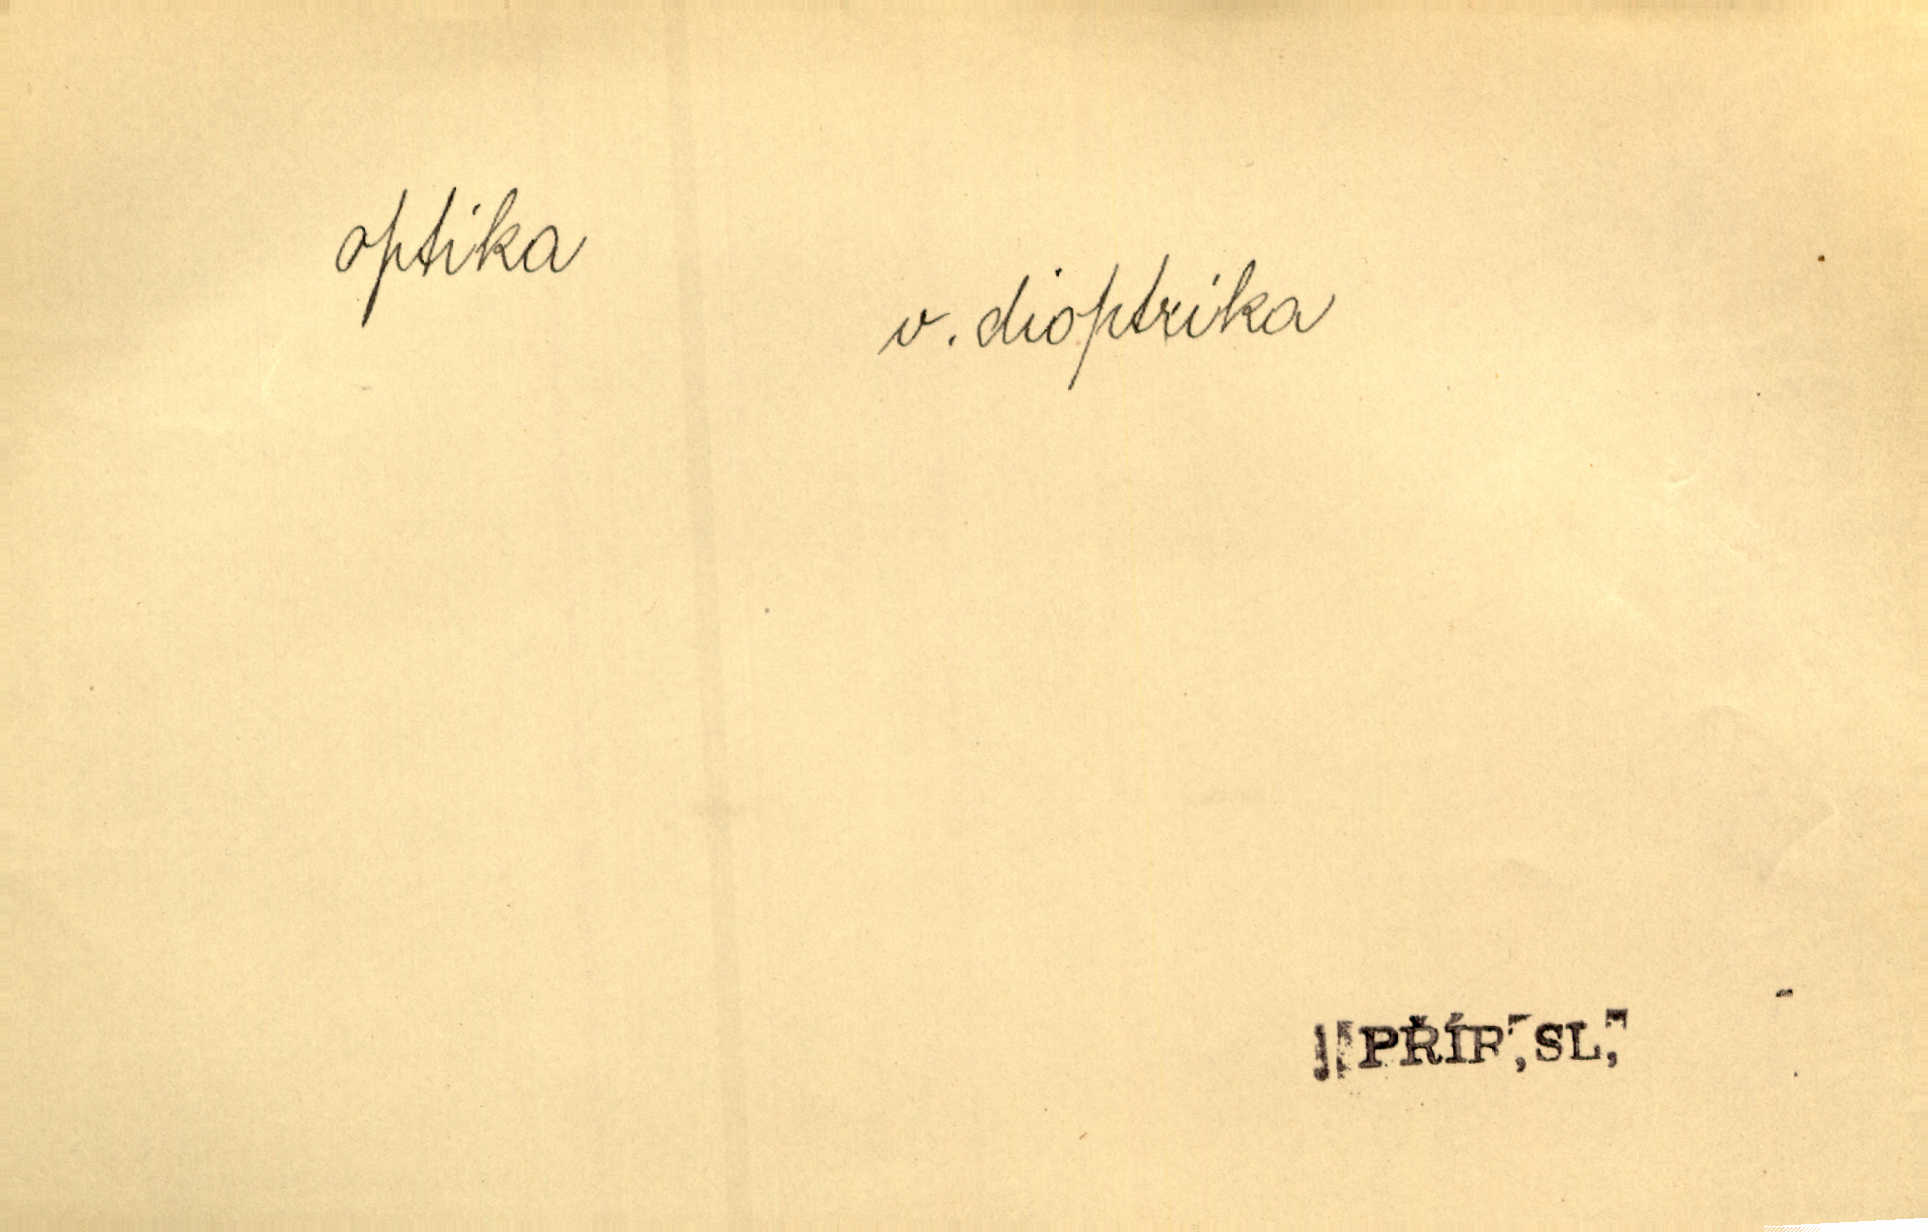 optika
v. dioptrika
PŘÍP, SL,